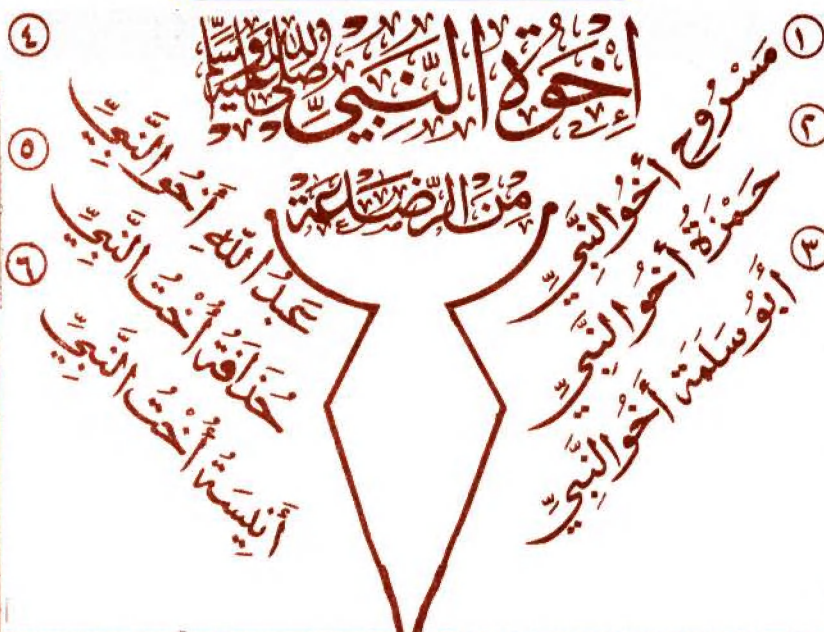 إِخْوَةُ النَّبِيِّ صَلَّى اللهُ عَلَيْهِ وَسَلَّمَ
مِنَ الرَّضَاعَةِ
١ مَسْرُوح أَخُو النَّبِيِّ
٢ حَمْزَةُ أَخُو النَّبِيِّ
٣ أَبُو سَلَمَة أَخُو النَّبِيِّ
٤ عَبْدُ اللهِ أَخُو النَّبِيِّ
٥ حُذَافَةُ أُخْتُ النَّبِيِّ
٦ أَنِيسَةُ أُخْتُ النَّبِيِّ